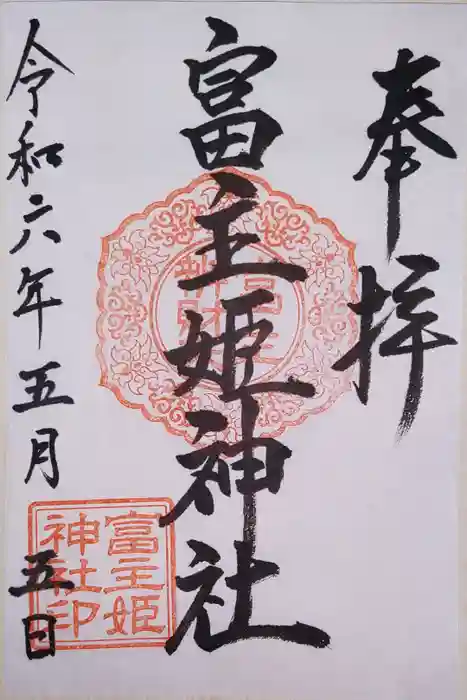 奉拝
富主姫神社
令和六年五月五日
富主姫
神社印